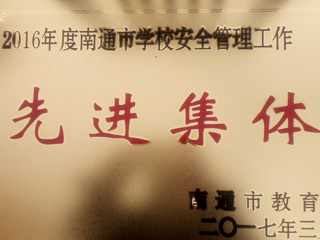 2016年度南通市学校安全管理工作
先进集体
南通市教育
二〇一七年三